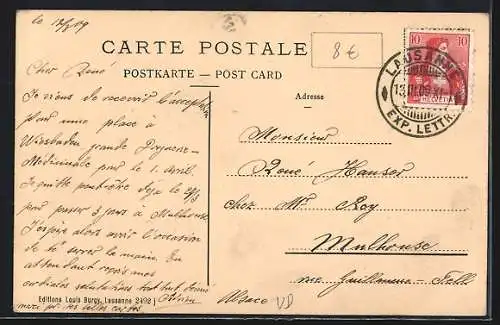 le 12/3/09
8€
CARTE POSTALE
POSTKARTE — POST CARD
Adresse
10 10
LAUSANNE
EXP. LETTR.
Cher René
Je viens de recevoir l'acceptation
pour une place à
Wiesbaden grande
Médicinale pour le 1. avril.
Je quitte peut-être déjà le
pour passer 3 jours à Mulhouse
J'espère alors avoir l'occasion
de te serrer la main. En
attendant reçois mes
cordiales salutations
Monsieur
René Hauser
chez Mr Roy
Mulhouse
rue Guillaume-Tell
Alsace
VD
Editions Louis Burgy, Lausanne 2492
merci pour tes